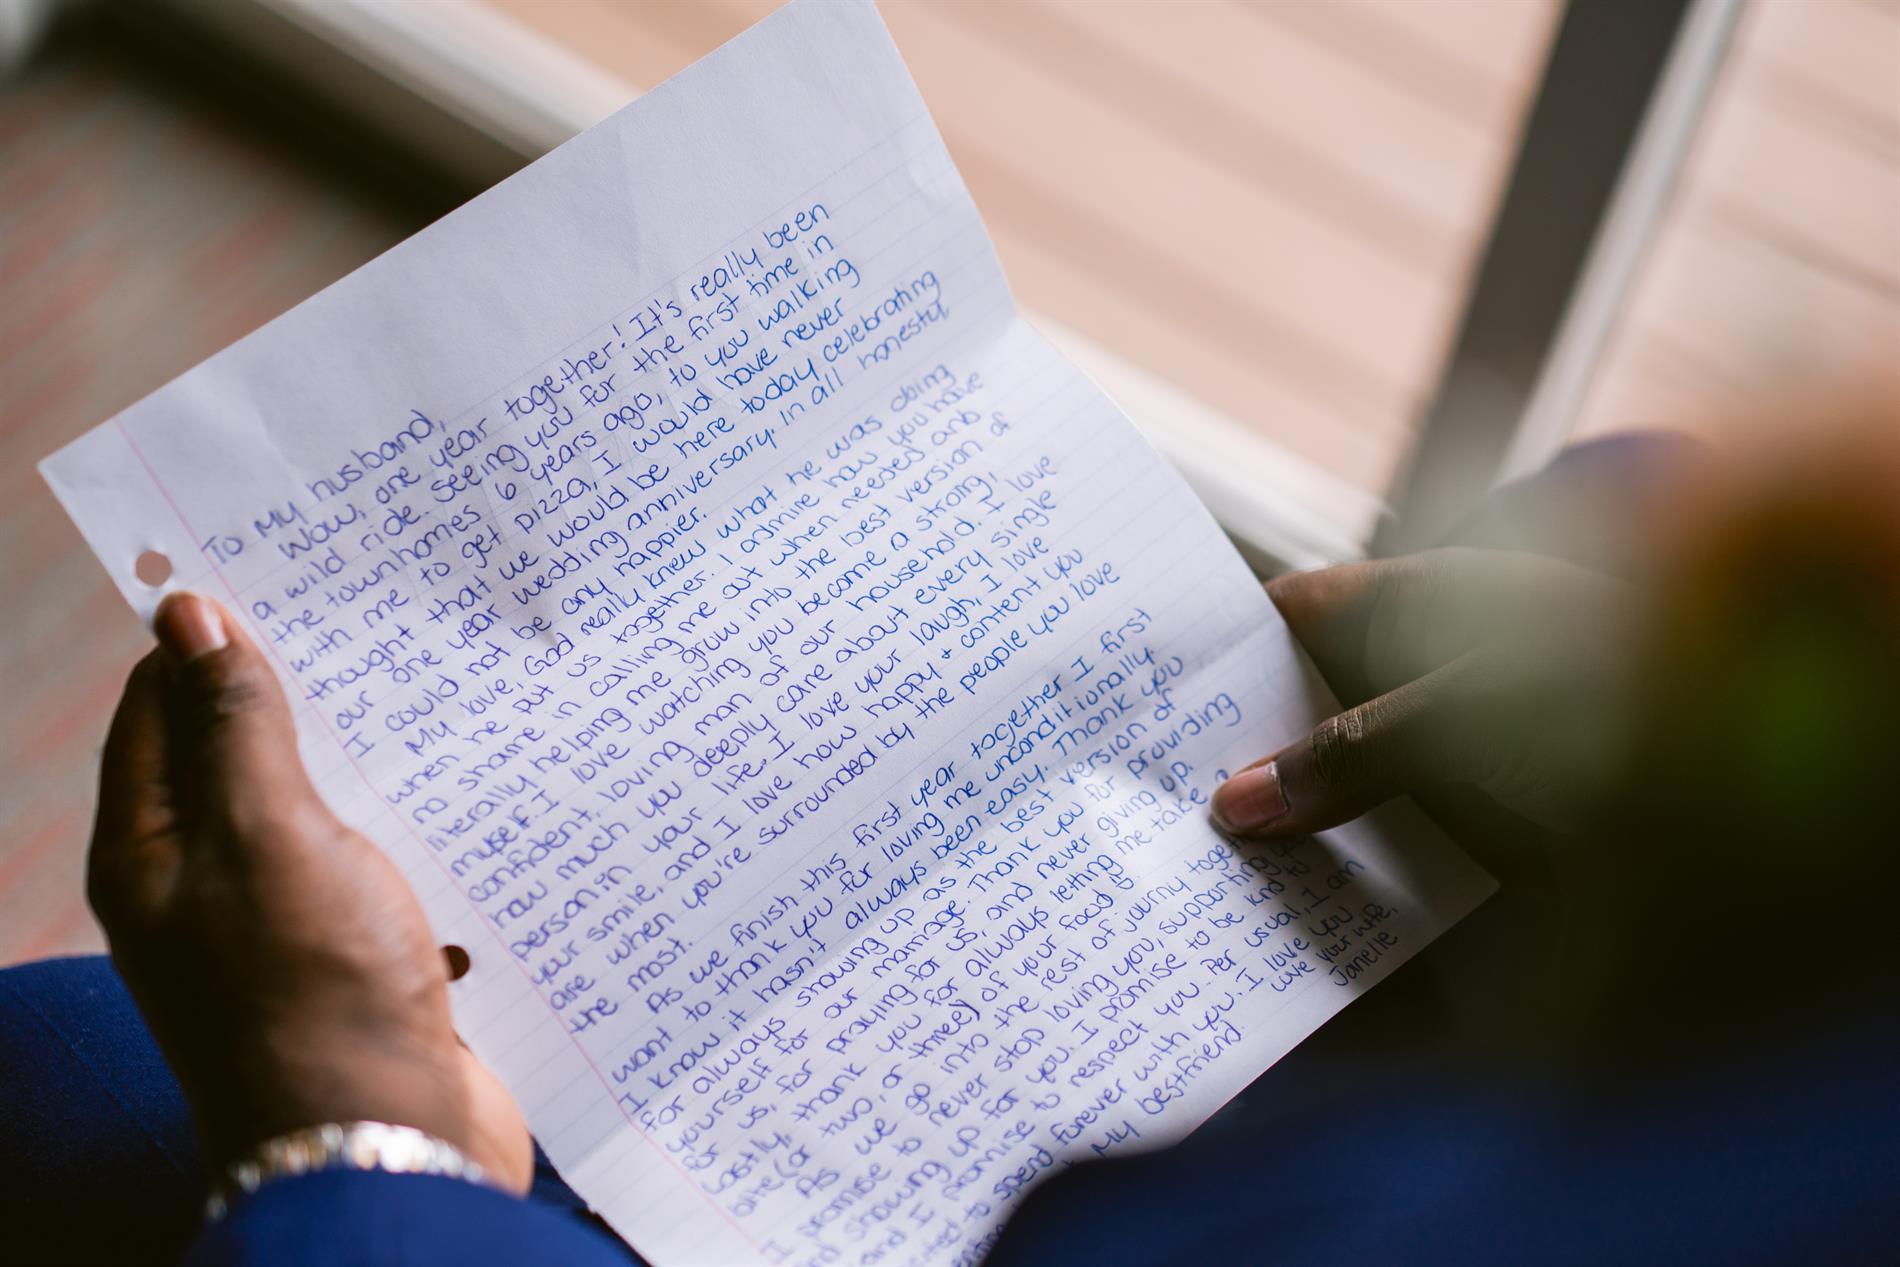 To My husband,
Wow, one year together! It's really been
a wild ride. Seeing you for the first time in
the townhomes 6 years ago, to you walking
with me to get pizza, I would have never
thought that we would be here today celebrating
our one year wedding anniversary. In all honesty,
I could not be any happier.
My love, God really knew what he was doing
when he put us together. I admire how you have
no shame in calling me out when needed and
literally helping me grow into the best version of
myself. I love watching you become a strong,
confident, loving man of our household. I love
how much you deeply care about every single
person in your life. I love your laugh, I love
your smile, and I love how happy + content you
are when you're surrounded by the people you love
the most.
As we finish this first year together I first
want to thank you for loving me unconditionally.
I know it hasn't always been easy. Thank you
for always showing up as the best version of
yourself for our marriage. Thank you for providing
for us, for praying for us, and never giving up.
Lastly, thank you for always letting me take a
bite (or two, or three) of your food
As we go into the rest of journy
I promise to never stop loving you, supporting
showing up for you. I promise to be kind to
and I promise to respect you. Per usual, I am
to spend forever with you. I love you
My bestfriend.
Love your wife,
Janelle